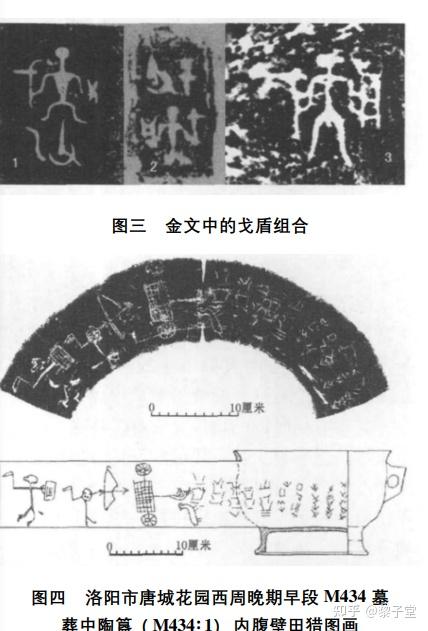 1
2
3
图三 金文中的戈盾组合
0 10厘米
0 10厘米
图四 洛阳市唐城花园西周晚期早段 M434 墓
葬中陶簋(M434:1)内腹壁田猎图画
知乎 @黎子堂